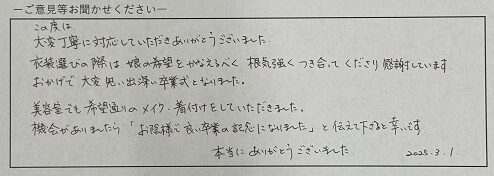 ―ご意見等お聞かせください―
この度は、
大変丁寧に対応していただきありがとうございました。
衣装選びの際は、娘の希望をかなえるべく 根気強くつき合ってくださり感謝しています。
おかげで 大変 思い出深い卒業式となりました。
美容室でも希望通りのメイク・着付けをしていただきました。
機会がありましたら「お陰様で良い卒業の記念になりました」と伝えて下さると幸いです。
本当にありがとうございました。 2025.3.1